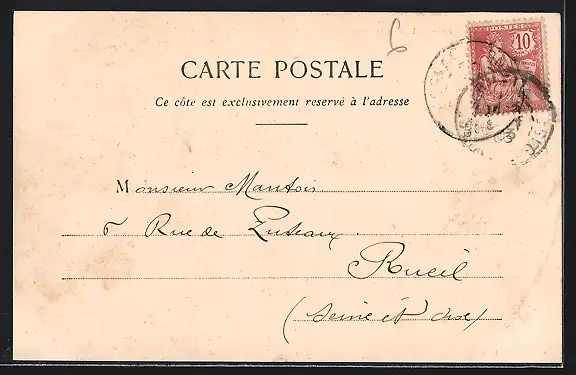 6
POSTES
10
CARTE POSTALE
Ce côte est exclusivement reservé à l'adresse
Monsieur Mantois
6 Rue de Puteaux
Rueil
(Seine et Oise)